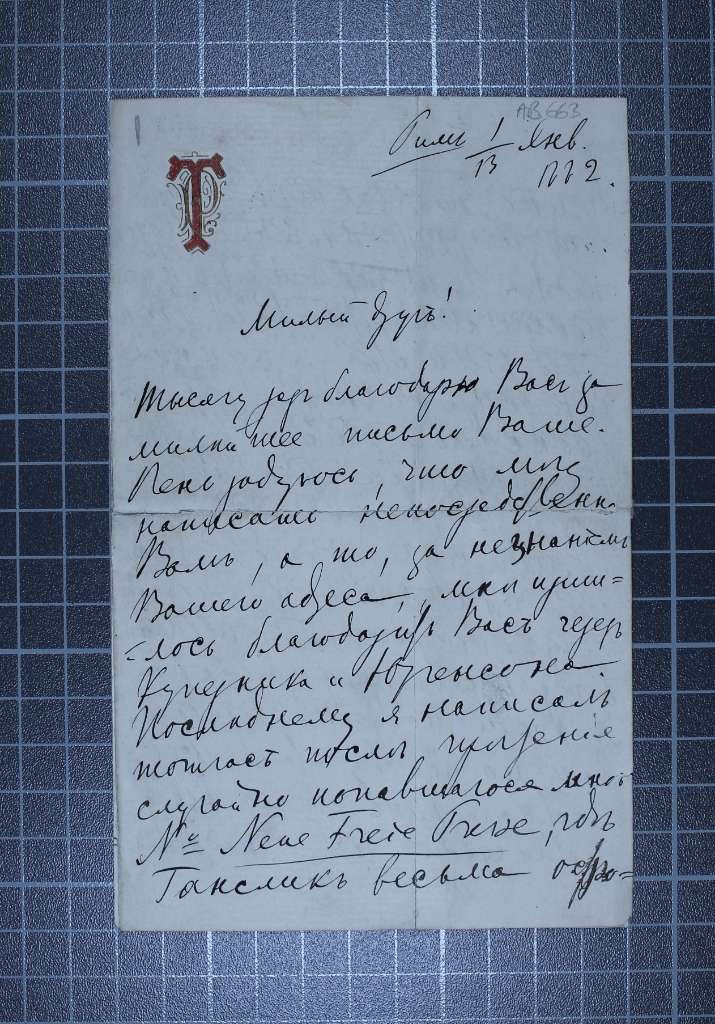 AB 663
Римъ 1/13 Янв.
1882.
Милый другъ!
Тысячу разъ благодарю Васъ за
милѣйшее письмо Ваше.
Очень радуюсь, что могу
написать непосредственно
Вамъ, а то, за незнаніемъ
Вашего адреса, мнѣ приш=
=лось благодарить Васъ черезъ
Куперника и Юргенсона.
Послѣднему я написалъ
тотчасъ послѣ прочтенія
случайно попавшагося мнѣ
№ Neue Freie Presse, гдѣ
Гансликъ весьма